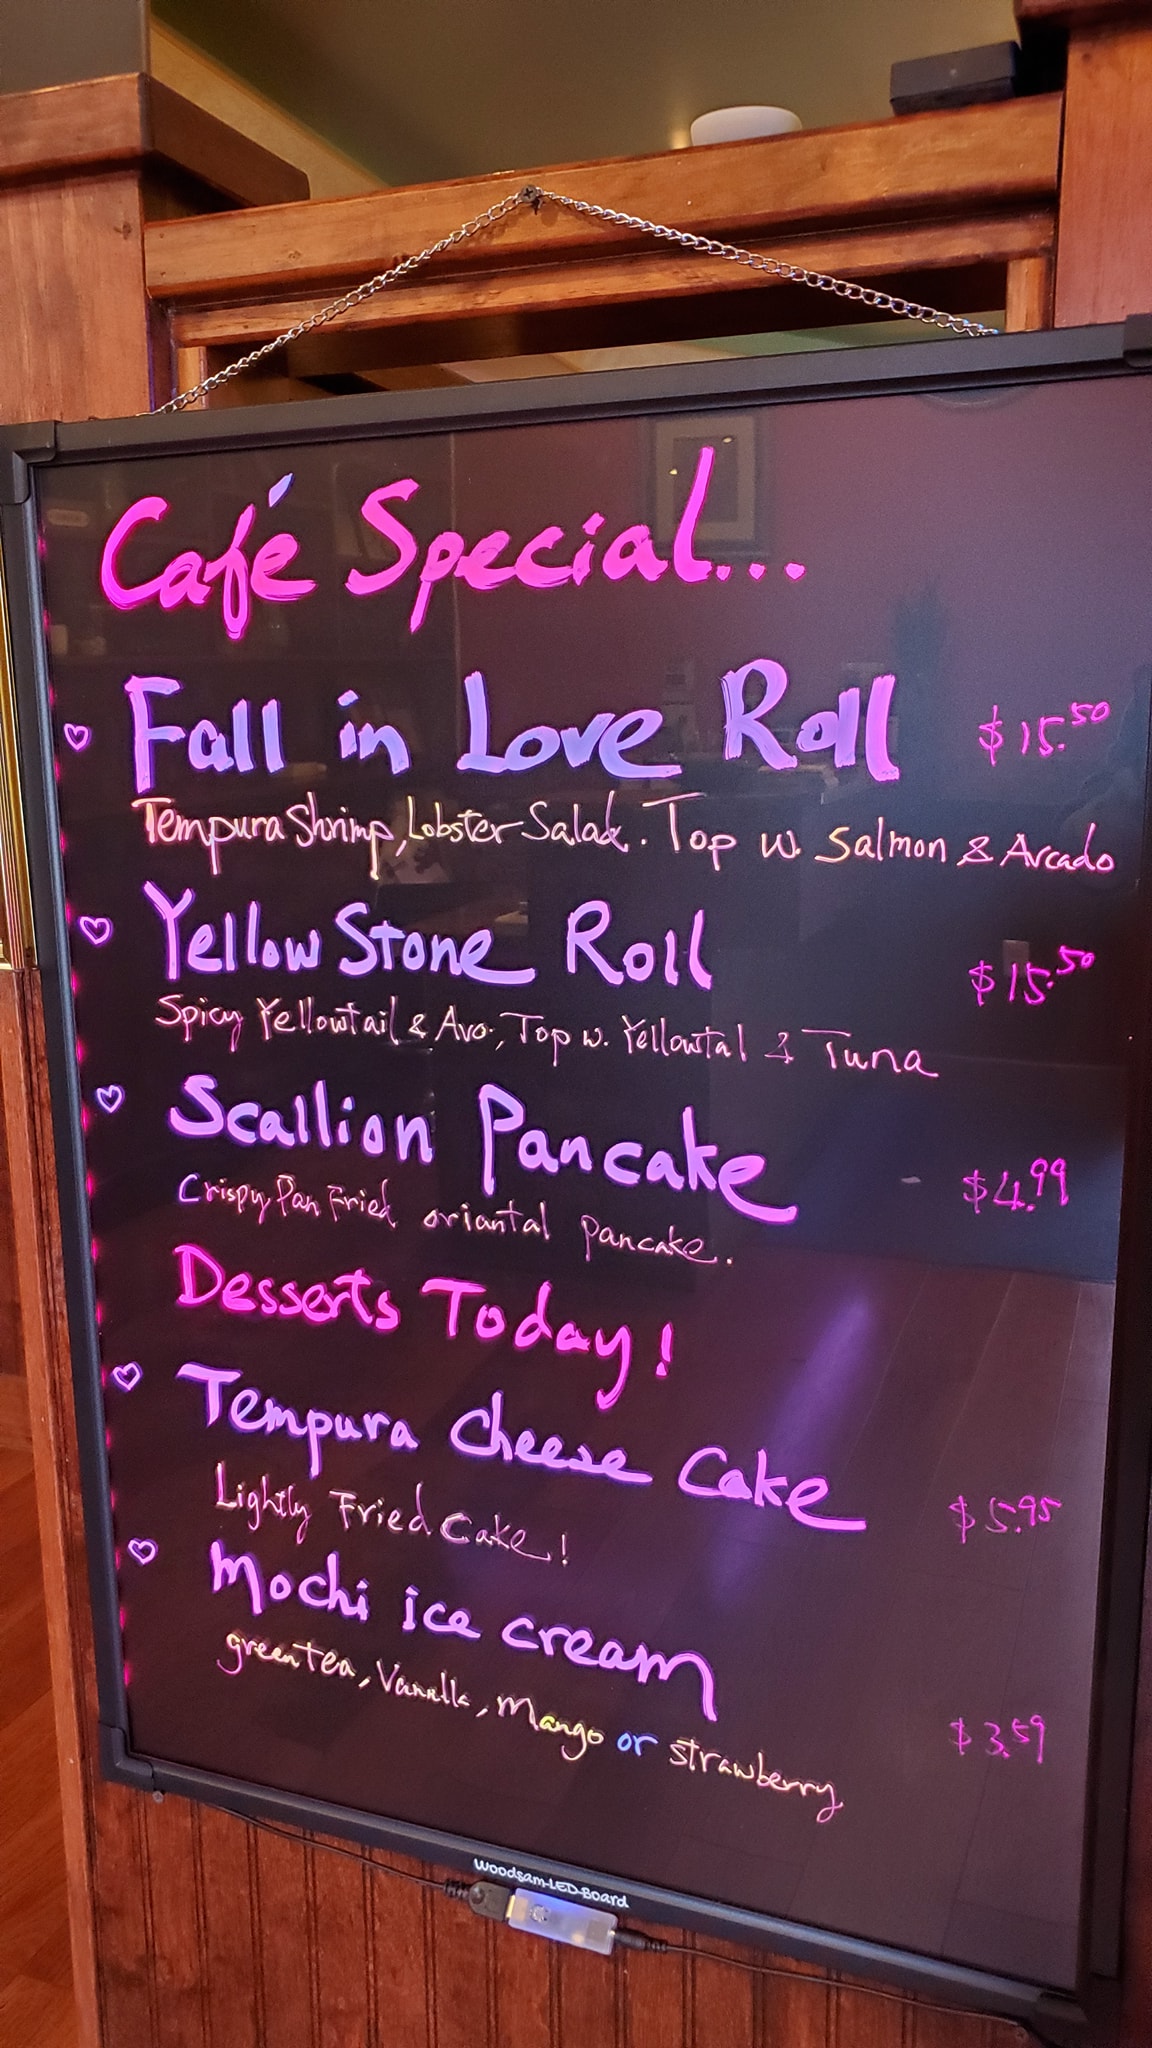 Café Special...
Fall in Love Roll $15.50
Tempura Shrimp, Lobster Salad. Top w. Salmon & Avcado
Yellow Stone Roll $15.50
Spicy Yellowtail & Avo., Top w. Yellowtal & Tuna
Scallion Pancake $4.99
Crispy Pan Fried oriantal pancake.
Desserts Today!
Tempura Cheese Cake $5.95
Lightly Fried Cake!
Mochi ice cream
greentea, Vanilla, Mango or strawberry $3.59
Woodsam-LED-Board